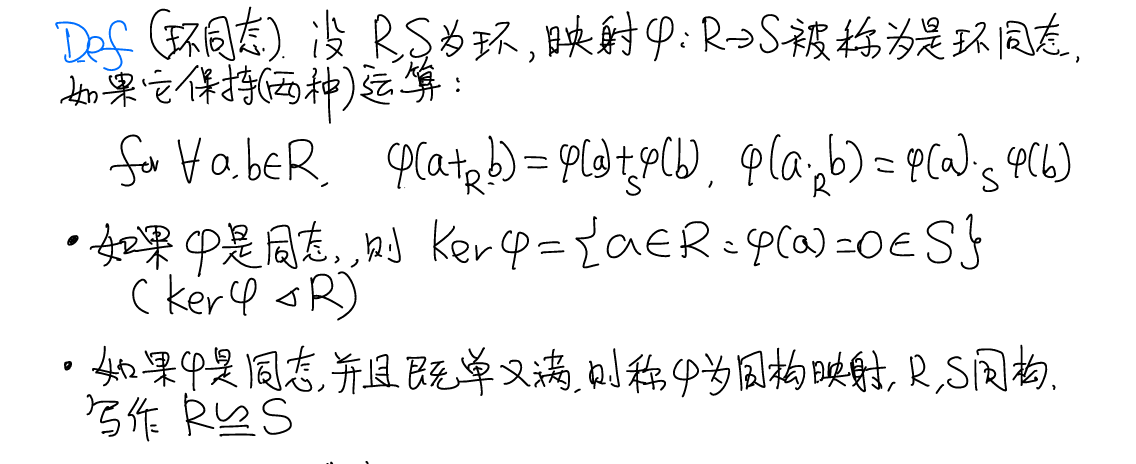 Def (环同态). 设 R,S为环, 映射φ: R→S被称为是环同态,
如果它保持(两种)运算:
for ∀a,b∈R, φ(a+_R b)=φ(a)+_S φ(b), φ(a·_R b)=φ(a)·_S φ(b)
• 如果φ是同态,则 Kerφ={a∈R:φ(a)=0∈S}
(kerφ ⊲ R)
• 如果φ是同态,并且既单又满,则称φ为同构映射, R,S同构.
写作 R≌S